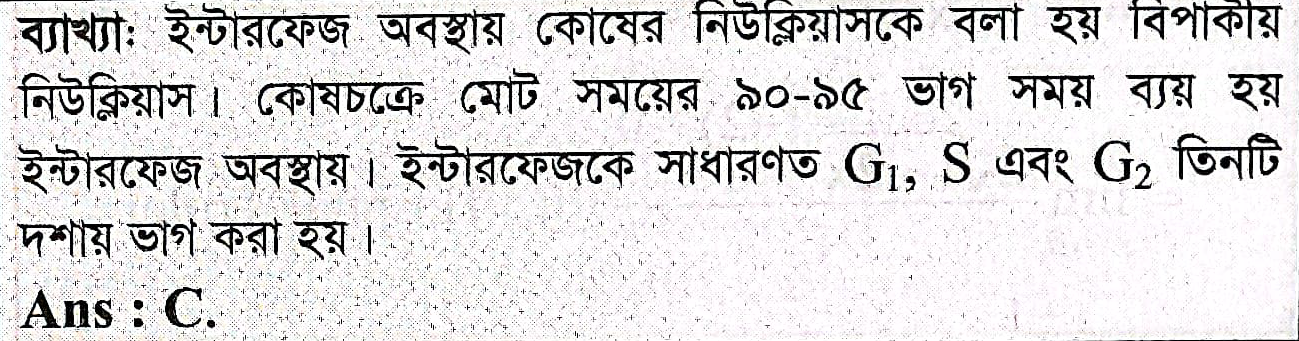 ব্যাখ্যা: ইন্টারফেজ অবস্থায় কোষের নিউক্লিয়াসকে বলা হয় বিপাকীয়
নিউক্লিয়াস। কোষচক্রে মোট সময়ের ৯০-৯৫ ভাগ সময় ব্যয় হয়
ইন্টারফেজ অবস্থায়। ইন্টারফেজকে সাধারণত G₁, S এবং G₂ তিনটি
দশায় ভাগ করা হয়।
Ans : C.